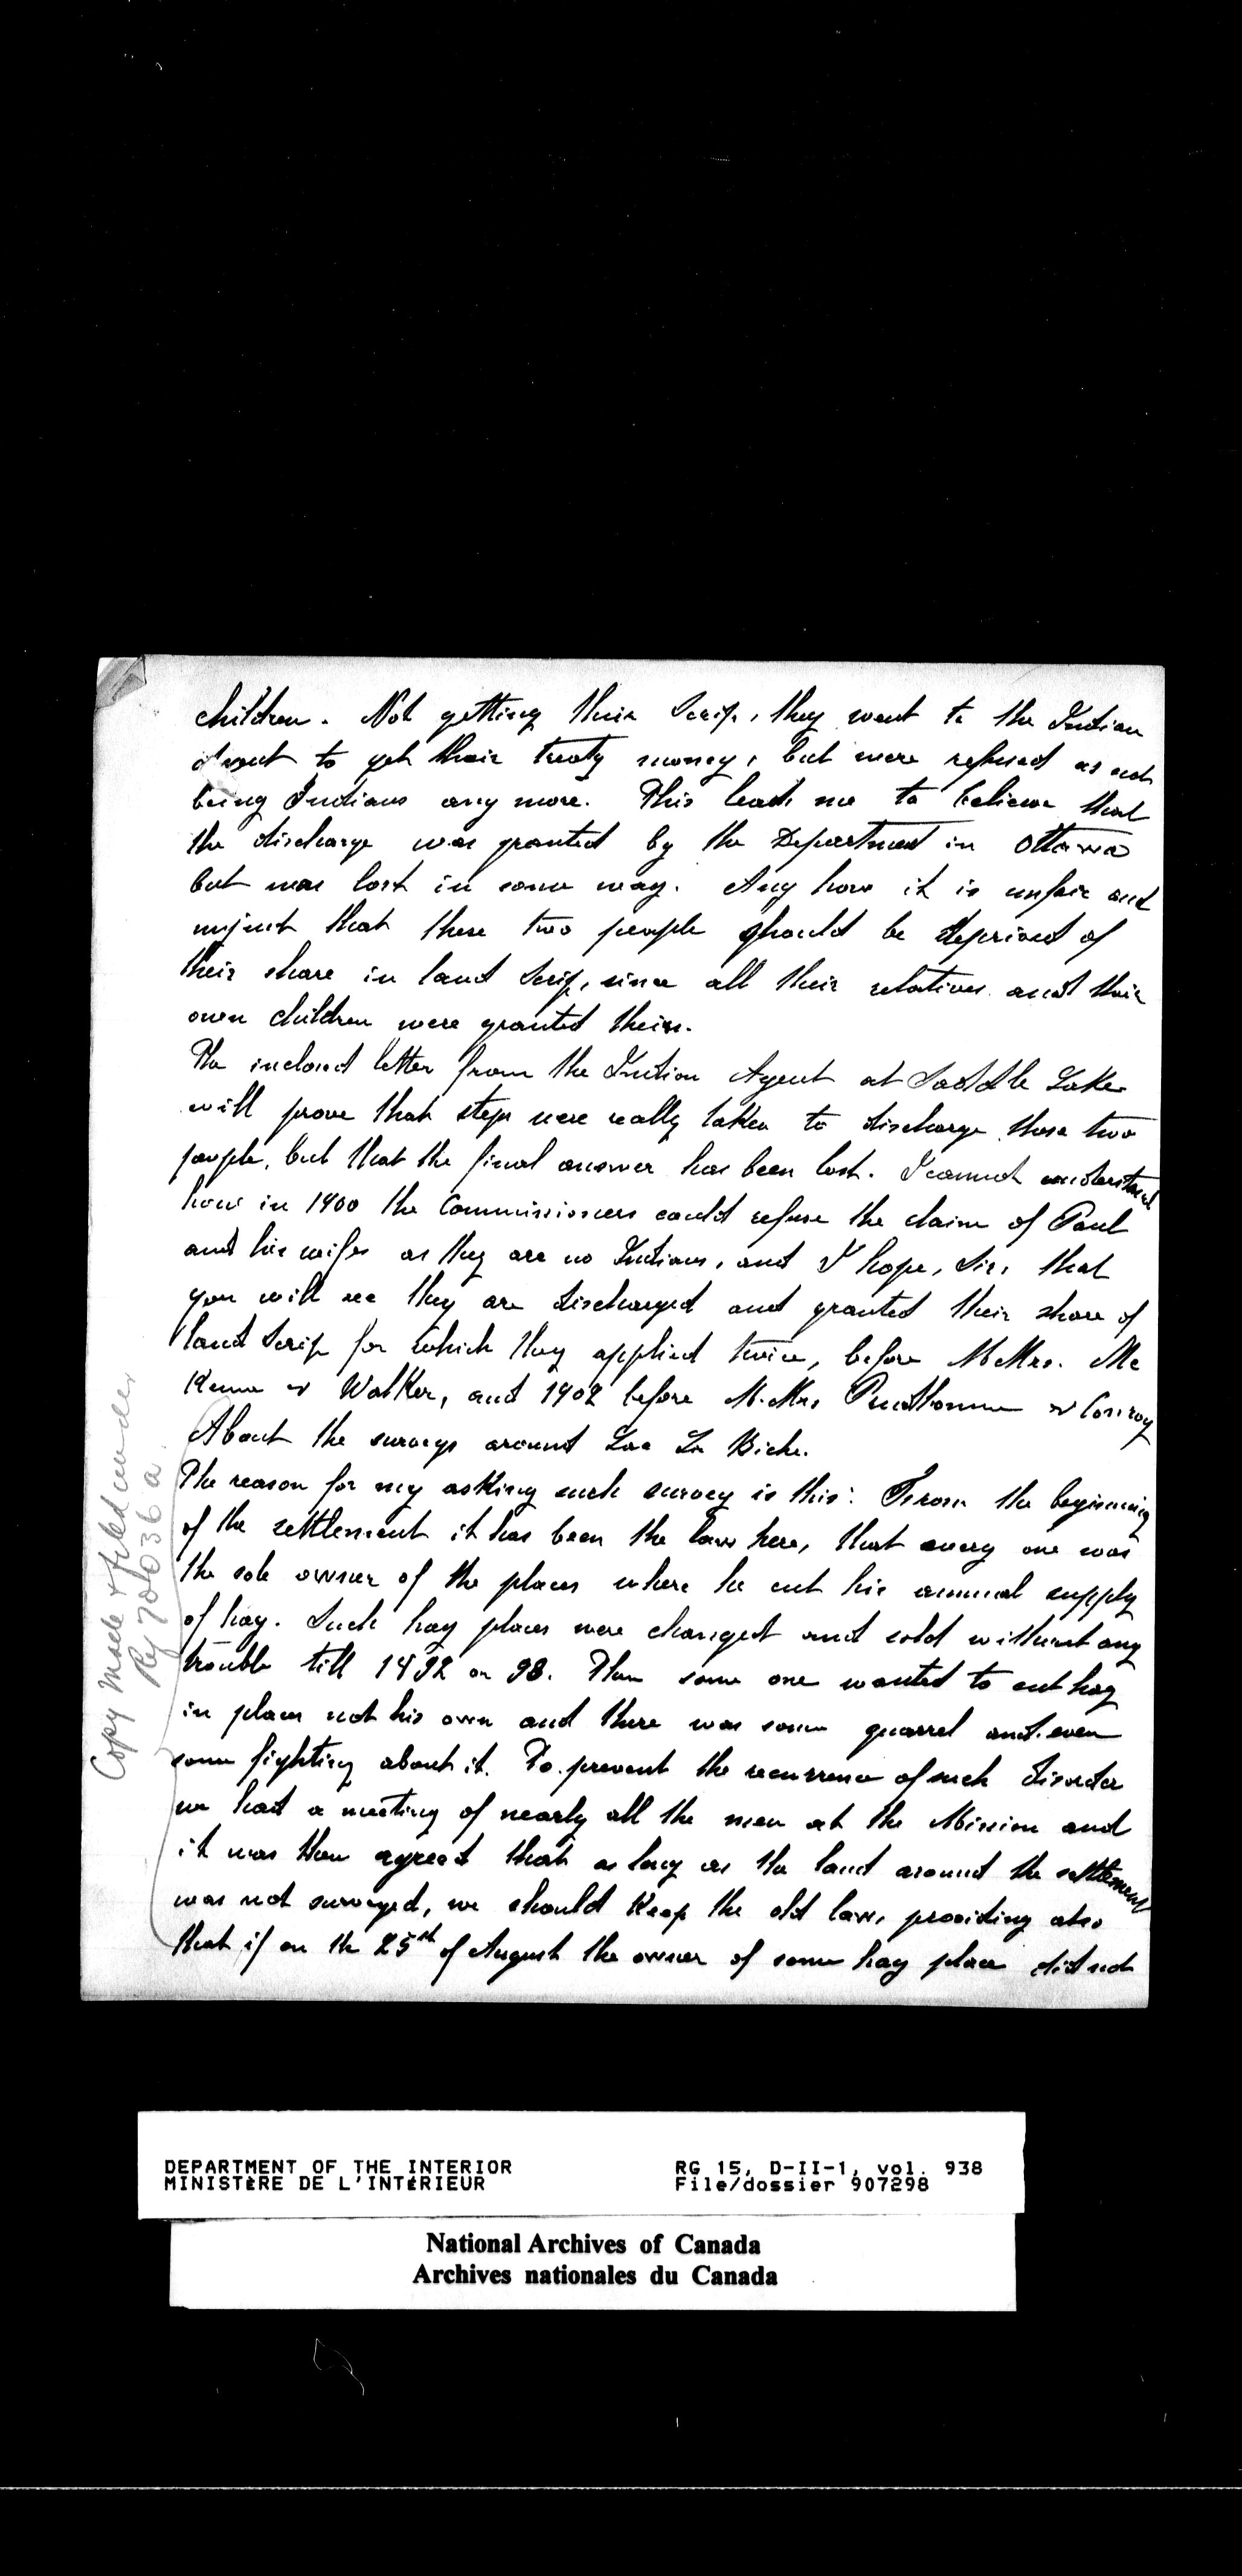 children. Not getting their Scrip, they went to the Indian
Agent to get their treaty money, but were refused as not
being Indians any more. This leads me to believe that
the discharge was granted by the Department in Ottawa
but was lost in some way. Any how it is unfair and
unjust that these two people should be deprived of
their share in land Scrip, since all their relatives and their
own children were granted theirs.
The inclosed letter from the Indian Agent at Saddle Lake
will prove that steps were really taken to discharge those two
people, but that the final answer has been lost. I cannot understand
how in 1900 the Commissioners could refuse the claim of Paul
and his wife as they are no Indians, and I hope, Sir, that
you will see they are discharged and granted their share of
land Scrip for which they applied twice, before M.Mrs. Mc
Kenna & Walker, and 1902 before M.Mrs Prudhomme & Conroy
About the surveys around Lac La Biche.
The reason for my asking such survey is this: From the beginning
of the settlement it has been the law here, that every one was
the sole owner of the places where he cut his annual supply
of hay. Such hay places were changed and sold without any
trouble till 1892 or 93. Then some one wanted to cut hay
in places not his own and there was some quarrel and even
some fighting about it. To prevent the recurrence of such disorder
we had a meeting of nearly all the men at the Mission and
it was then agreed that as long as the land around the settlement
was not surveyed, we should keep the old law, providing also
that if on the 25st of August the owner of some hay place did not
Copy made & filed under
DEPARTMENT OF THE INTERIOR
MINISTÈRE DE L'INTÉRIEUR
RG 15, D-II-1, vol. 938
File/dossier 907298
National Archives of Canada
Archives nationales du Canada